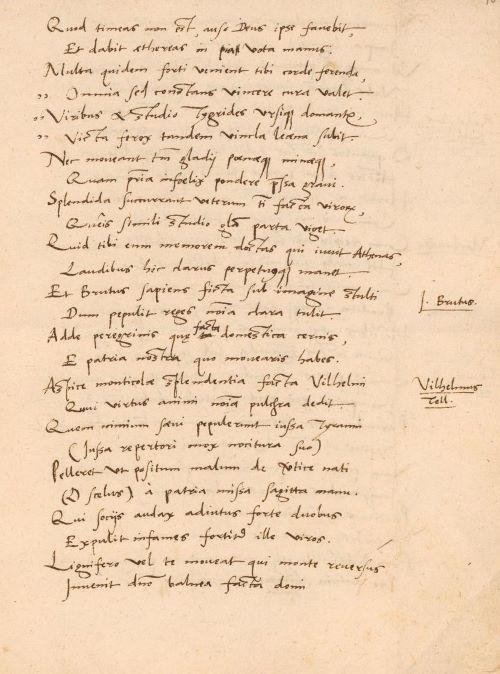 Quod timeas non est, auso Deus ipse favebit,
Et dabit æthereas in vota manus.
Multa quidem forti venient tibi corde ferenda,
,, Omnia sed constans vincere cura valet.
,, Viribus & studio Tygrides Ursiq domant,
,, Victa ferox tandem vincla leæna subit.
Nec moveant tm gladij poenæq minæq,
Quam pria infoelix pondere pssa gravi.
Splendida succurrant veterum ti facta viror,
Queis simili studio gla parta viget.
Quid tibi enim memorem doctas qui iuvit Athenas,
Laudibus hic clarus perpetuoq manet
Et Brutus sapiens ficta sub imagine stulti
Dum pepulit reges noia clara tulit.
L. Brutus.
Adde peregrinis quæ facta domestica cernis,
E patria nostra quo movearis habes.
Aspice monticolæ splendentia facta Vilhelmi
Cui virtus animi noia pulchra dedit.
Vilhelmus
Tell.
Quem nimium sævi pepulerunt iussa Tyranni
(Iussa repertori mox nocitura suo)
Pelleret ut positum malum de vtice nati
(O scelus) à patria missa sagitta manu.
Qui socijs audax adiutus forte duobus
Expulit infames fortit ille viros.
Lignifero vel te moveat qui monte reversus
Invenit dno balnea facta domi